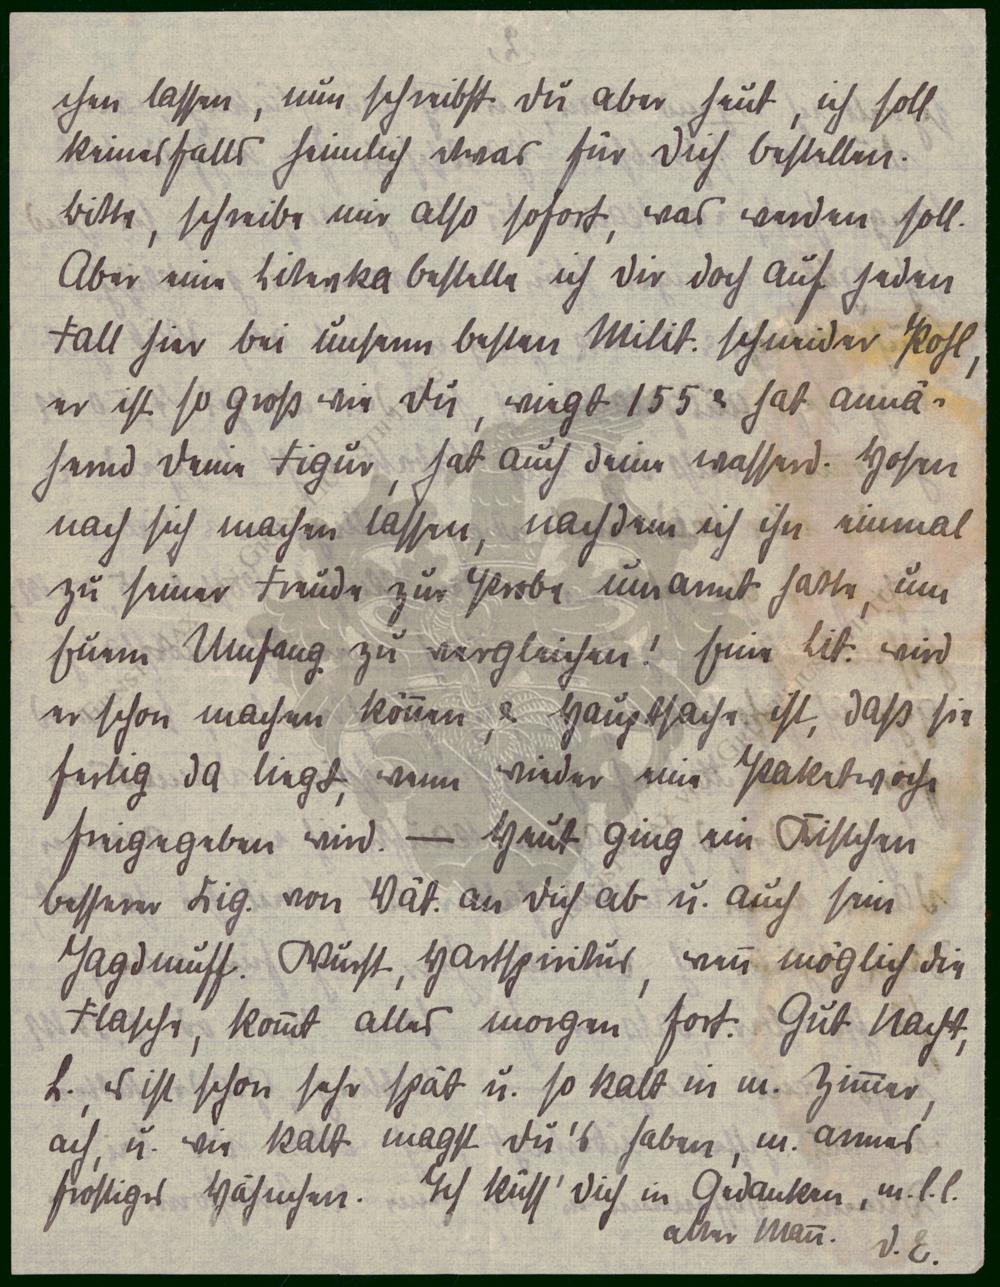 chen lassen, nun schreibst du aber heut, ich soll
keinesfalls heimlich etwas für Dich bestellen.
Bitte, schreibe mir also sofort, was werden soll.
Aber eine Litevka bestelle ich dir doch auf jeden
Fall hier bei unserm besten Milit. schneider Pohl,
er ist so groß wie Du, wiegt 155 & hat annä-
hernd Deine Figur, hat auch deine wasserd. Hosen
nach sich machen lassen, nachdem ich ihn einmal
zu seiner Freude zur Probe umarmt hatte, um
Euern Umfang zu vergleichen! Eine Lit. wird
er schon machen können, & Hauptsache ist, daß sie
fertig da liegt, wenn wieder eine Paketwoche
freigegeben wird. — Heut ging ein Kistchen
besserer Zig. von Vät. an Dich ab u. auch sein
Jagdmuff. Wurst, Hartspiritus, wen̄ möglich die
Flasche, kom̄t alles morgen fort. Gut Nacht,
L., es ist schon sehr spät u. so kalt in m. Zim̄er,
ach, u. wie kalt magst du's haben, m. armes
frostiges Hähnchen. Ich küss' Dich in Gedanken, m. l. l.
alter Man̄. D. E.